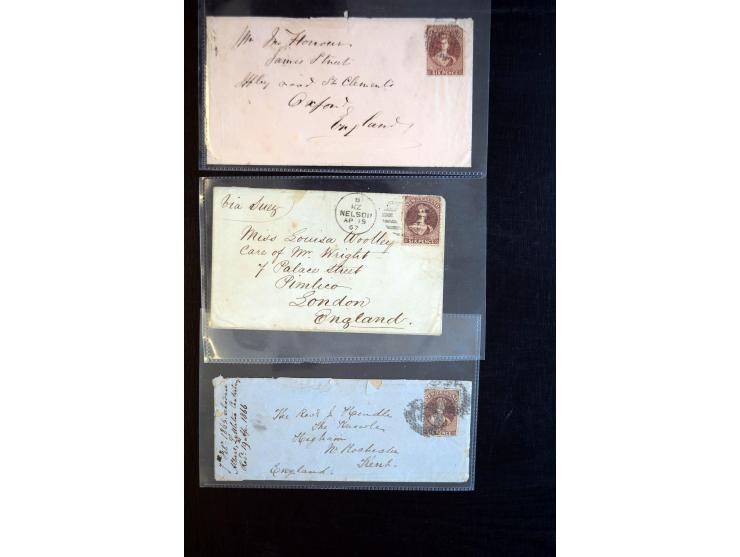 Mr Jas Honour
James Street
Iffley road St Clements
Oxford
England
SIX PENCE
Via Suez
B
NZ
NELSON
AP 15
67
SIX PENCE
Miss Louisa Woolley
Care of Mr. Wright
7 Palace Street
Pimlico
London
England.
SIX PENCE
The Revd. J. Hindle
The Knowle
Higham
Nr Rochester
Kent.
England
1866